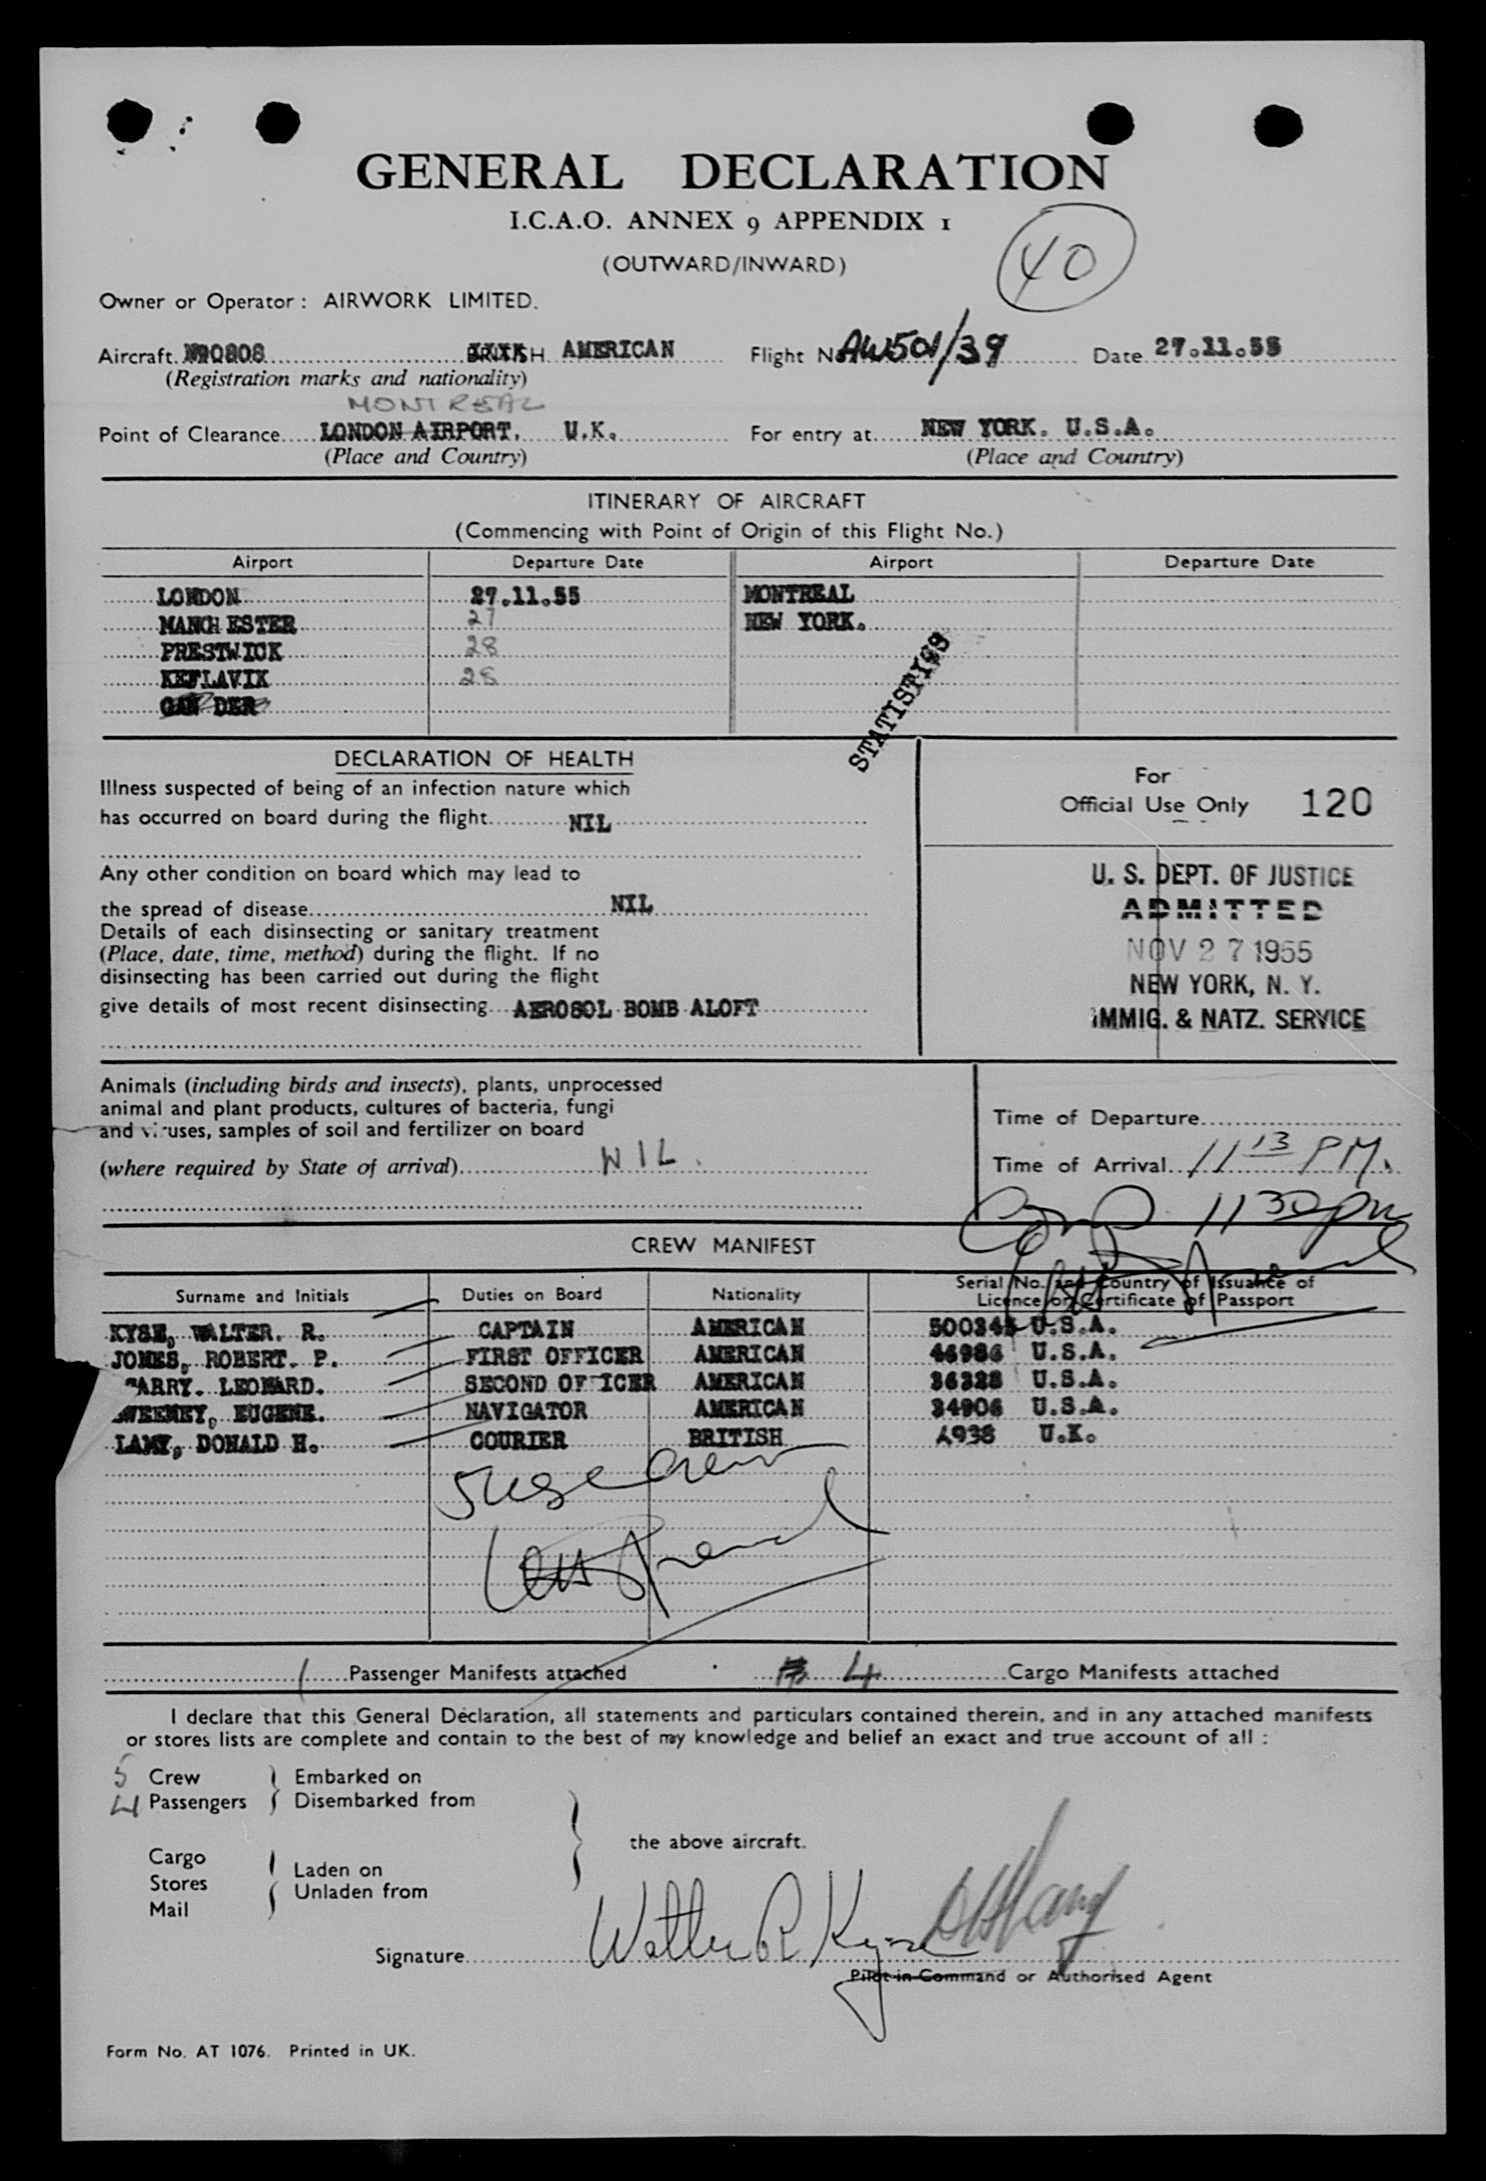 GENERAL DECLARATION
I.C.A.O. ANNEX 9 APPENDIX 1
(OUTWARD/INWARD)
40
Owner or Operator : AIRWORK LIMITED.
Aircraft. AMERICAN Flight No. AW501/39 Date 27.11.55
(Registration marks and nationality)
MONTREAL
Point of Clearance LONDON AIRPORT. U.K. For entry at NEW YORK. U.S.A.
(Place and Country) (Place and Country)
ITINERARY OF AIRCRAFT
(Commencing with Point of Origin of this Flight No.)
Airport Departure Date Airport Departure Date
LONDON 27.11.55 MONTREAL
MANCHESTER 27 NEW YORK.
PRESTWICK 28
KEFLAVIK 28
GANDER
STATISTICS
DECLARATION OF HEALTH
Illness suspected of being of an infection nature which
has occurred on board during the flight NIL
Any other condition on board which may lead to
the spread of disease NIL
Details of each disinsecting or sanitary treatment
(Place, date, time, method) during the flight. If no
disinsecting has been carried out during the flight
give details of most recent disinsecting AEROSOL BOMB ALOFT
For
Official Use Only 120
U. S. DEPT. OF JUSTICE
ADMITTED
NOV 27 1955
NEW YORK, N. Y.
IMMIG. & NATZ. SERVICE
Animals (including birds and insects), plants, unprocessed
animal and plant products, cultures of bacteria, fungi
and viruses, samples of soil and fertilizer on board
(where required by State of arrival) NIL.
Time of Departure
Time of Arrival 11 13 PM.
Comp 11 30 pm
CREW MANIFEST
Surname and Initials Duties on Board Nationality Serial No. and Country of Issuance of
Licence or Certificate of Passport
KYSE, WALTER. R. CAPTAIN AMERICAN U.S.A.
JONES, ROBERT. P. FIRST OFFICER AMERICAN 46986 U.S.A.
LEONARD. SECOND OFFICER AMERICAN 36328 U.S.A.
SWEENEY, EUGENE. NAVIGATOR AMERICAN 34906 U.S.A.
DONALD H. COURIER BRITISH U.K.
5 Crew
1 Passenger Manifests attached 4 Cargo Manifests attached
I declare that this General Declaration, all statements and particulars contained therein, and in any attached manifests
or stores lists are complete and contain to the best of my knowledge and belief an exact and true account of all :
5 Crew Embarked on
4 Passengers Disembarked from
the above aircraft.
Cargo
Stores
Mail
Laden on
Unladen from
Signature Walter R Kyse
Pilot-in-Command or Authorised Agent
Form No. AT 1076. Printed in UK.